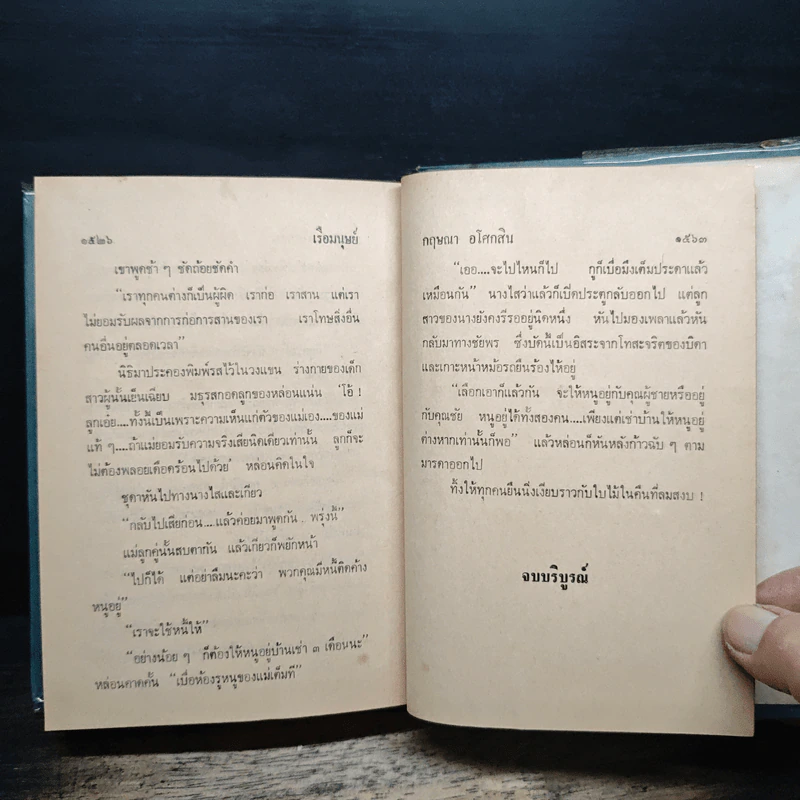 ๑๕๒๖ เรือมนุษย์
เขาพูดช้า ๆ ชัดถ้อยชัดคำ
“เราทุกคนต่างก็เป็นผู้ผิด เราก่อ เราสาน แต่เรา
ไม่ยอมรับผลจากการก่อการสานของเรา เราโทษสิ่งอื่น
คนอื่นอยู่ตลอดเวลา”
นิธิมาประคองพิมพ์รสไว้ในวงแขน ร่างกายของเด็ก
สาวผู้นั้นเย็นเฉียบ มธุรสกอดลูกของหล่อนแน่น ‘โอ้ !
ลูกเอ๋ย....ทั้งนี้เป็นเพราะความเห็นแก่ตัวของแม่เอง....ของแม่
แท้ ๆ....ถ้าแม่ยอมรับความจริงเสียนิดเดียวเท่านั้น ลูกก็จะ
ไม่ต้องพลอยเดือดร้อนไปด้วย’ หล่อนคิดในใจ
ชุดาหันไปทางนางไสและเกียว
“กลับไปเสียก่อน....แล้วค่อยมาพูดกัน.. พรุ่งนี้”
แม่ลูกคู่นั้นสบตากัน แล้วเกียวก็พยักหน้า
“ไปก็ได้ แต่อย่าลืมนะคะว่า พวกคุณมีหนี้ติดค้าง
หนูอยู่”
“เราจะใช้หนี้ให้”
“อย่างน้อย ๆ ก็ต้องให้หนูอยู่บ้านเช่า ๓ เดือนนะ”
หล่อนคาดคั้น “เบื่อห้องรูหนูของแม่เต็มที”
กฤษณา อโศกสิน ๑๕๖๓
“เออ....จะไปไหนก็ไป กูก็เบื่อมึงเต็มประดาแล้ว
เหมือนกัน” นางไสว่าแล้วก็เปิดประตูกลับออกไป แต่ลูก
สาวของนางยังคงรีรออยู่นิดหนึ่ง หันไปมองเพลาแล้วหัน
กลับมาทางชัยพร ซึ่งบัดนี้เป็นอิสระจากโทสะจริตของบิดา
และเกาะหน้าหม้อรถยืนร้องไห้อยู่
“เลือกเอาก็แล้วกัน จะให้หนูอยู่กับคุณผู้ชายหรืออยู่
กับคุณชัย หนูอยู่ได้ทั้งสองคน....เพียงแต่เช่าบ้านให้หนูอยู่
ต่างหากเท่านั้นก็พอ” แล้วหล่อนก็หันหลังก้าวฉับ ๆ ตาม
มารดาออกไป
ทิ้งให้ทุกคนยืนนิ่งเงียบราวกับใบไม้ในคืนที่ลมสงบ !
จบบริบูรณ์